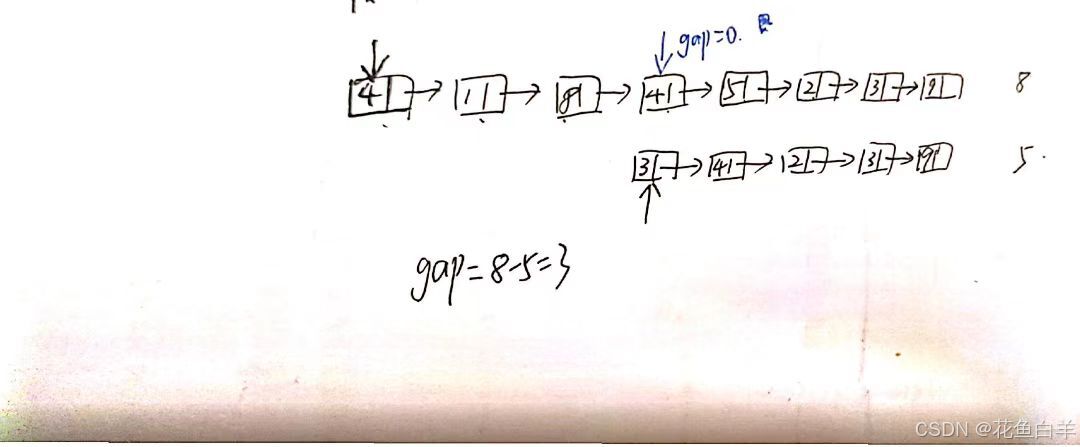 gap=0.
4 1 8 4 5 2 3 9 8
3 4 2 3 9 5.
gap=8-5=3
CSDN @花鱼白羊